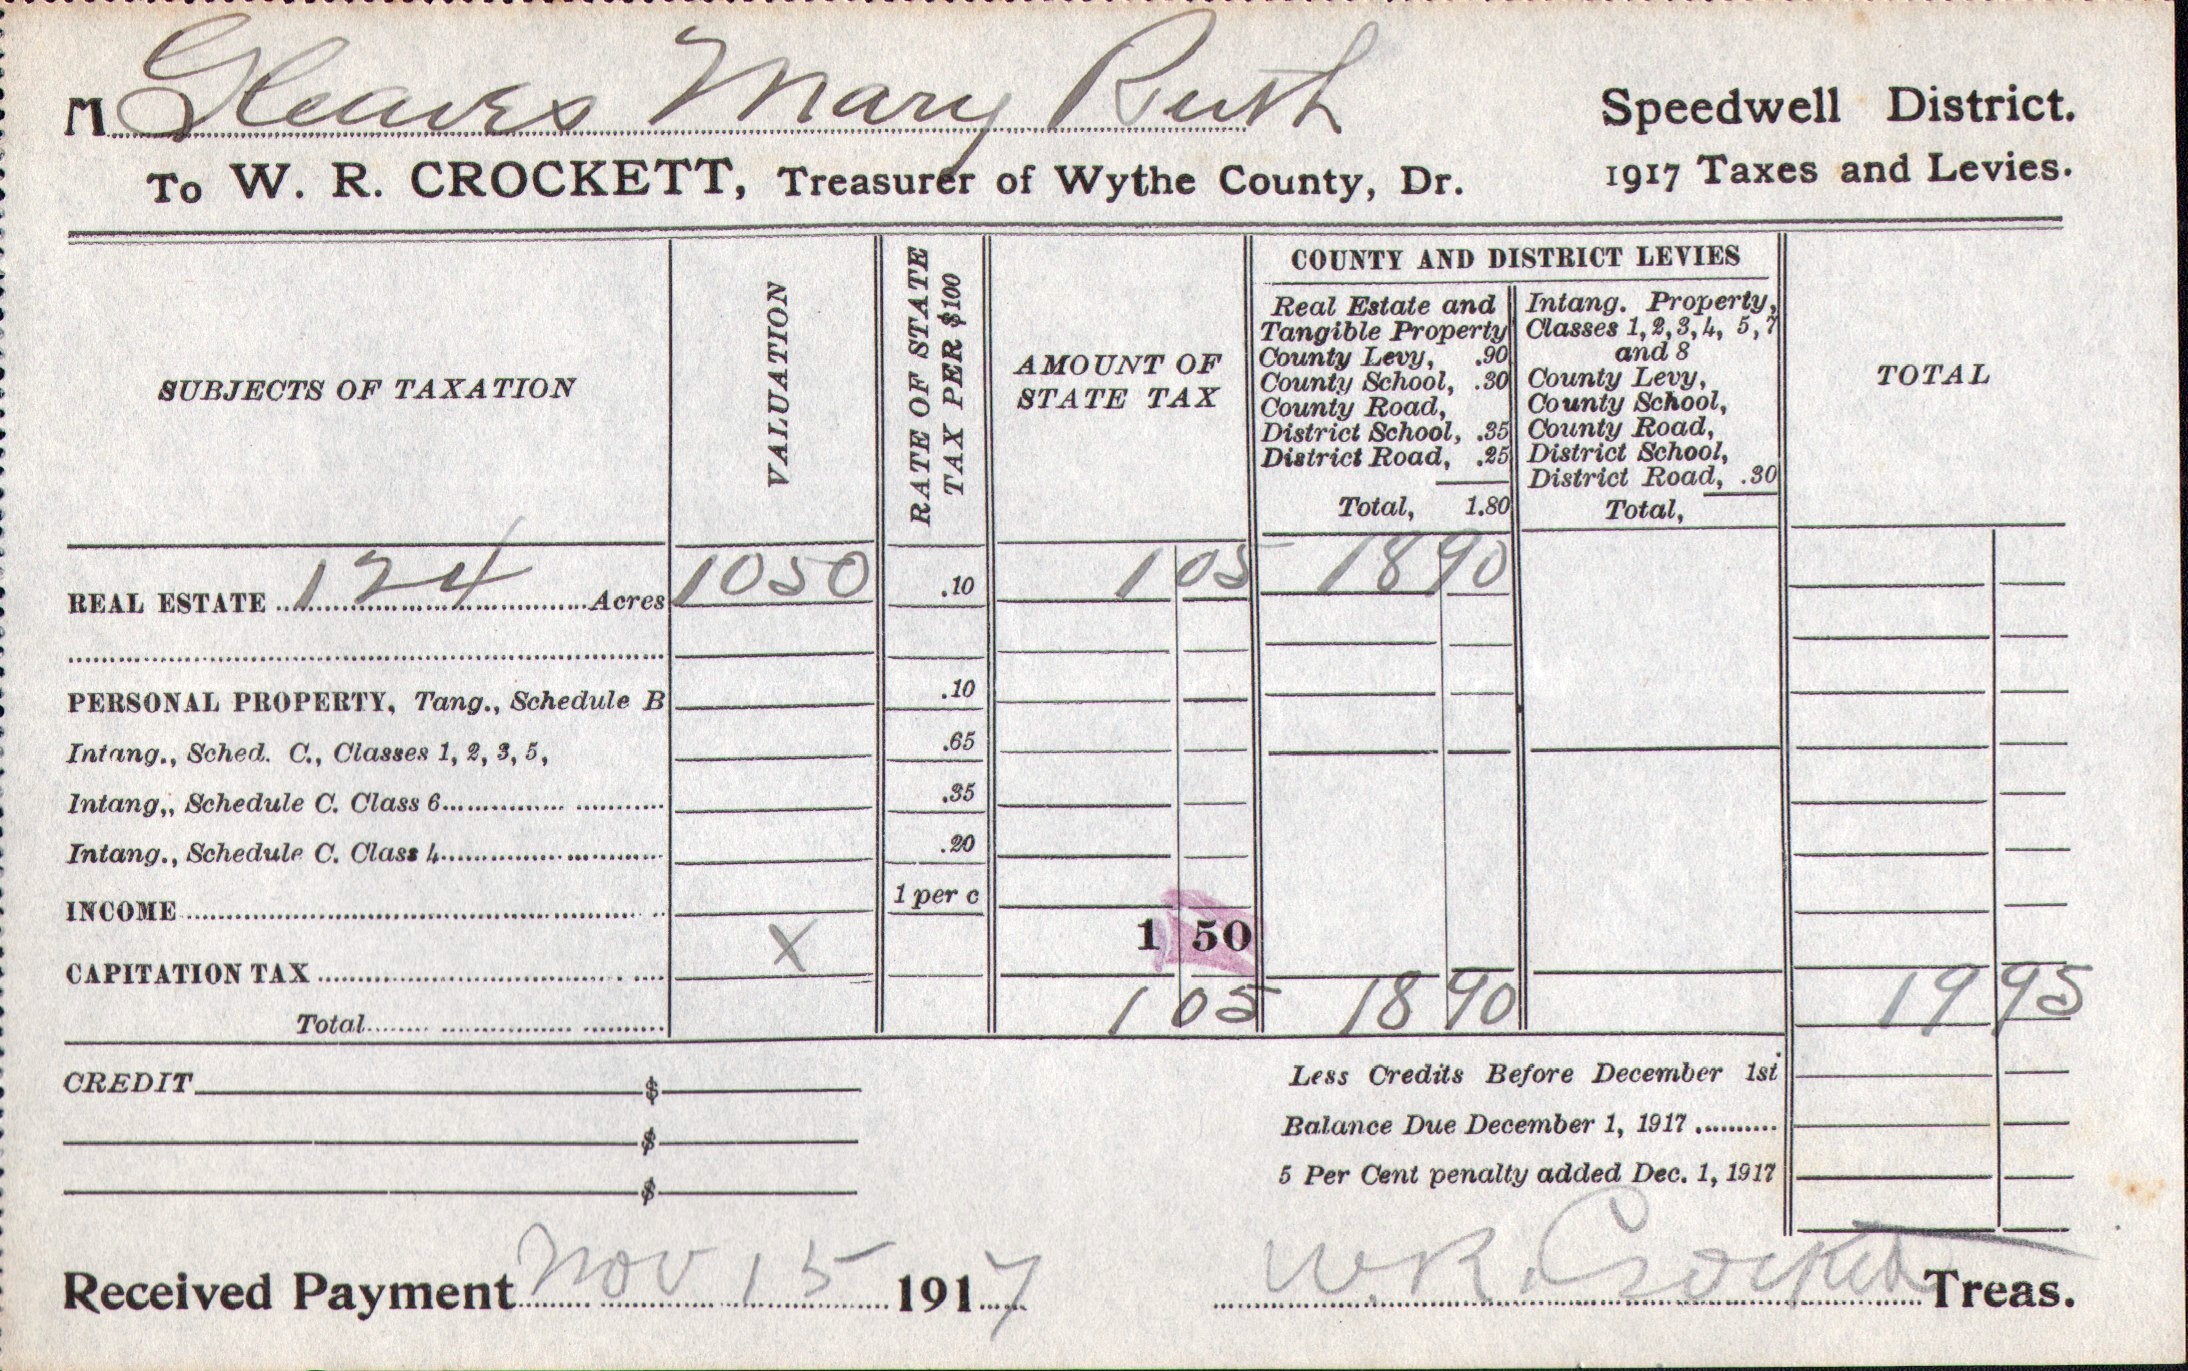 M Gleaves Mary Ruth
Speedwell District.
To W. R. CROCKETT, Treasurer of Wythe County, Dr.
1917 Taxes and Levies.
SUBJECTS OF TAXATION
VALUATION
RATE OF STATE
TAX PER $100
AMOUNT OF
STATE TAX
COUNTY AND DISTRICT LEVIES
Real Estate and
Tangible Property
County Levy, .90
County School, .30
County Road,
District School, .35
District Road, .25
Total, 1.80
Intang. Property,
Classes 1, 2, 3, 4, 5, 7
and 8
County Levy,
County School,
County Road,
District School,
District Road, .30
Total,
TOTAL
REAL ESTATE 124 Acres 1050 .10 1 05 18 90
PERSONAL PROPERTY, Tang., Schedule B .10
Intang., Sched. C., Classes 1, 2, 3, 5, .65
Intang,, Schedule C. Class 6 .35
Intang., Schedule C. Class 4 .20
INCOME 1 per c
CAPITATION TAX X 1 50
Total 1 05 18 90 19 95
CREDIT $
$
$
Less Credits Before December 1st
Balance Due December 1, 1917
5 Per Cent penalty added Dec. 1, 1917
Received Payment Nov 15 1917 W. R. Crockett Treas.